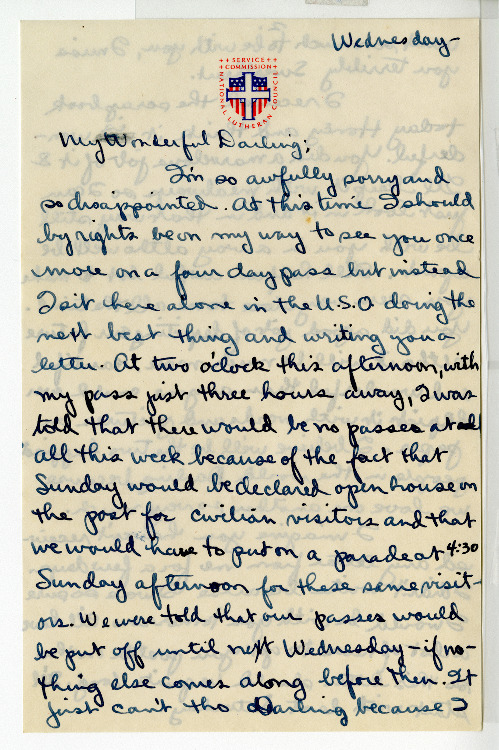 Wednesday-
SERVICE
COMMISSION
NATIONAL LUTHERAN COUNCIL
My Wonderful Darling;
I'm so awfully sorry and
so disappointed. At this time I should
by rights be on my way to see you once
more on a four day pass but instead
I sit here alone in the U.S.O doing the
next best thing and writing you a
letter. At two o'clock this afternoon, with
my pass just three hours away, I was
told that there would be no passes at all
all this week because of the fact that
Sunday would be declared open house on
the post for civilian visitors and that
we would have to put on a parade at 4:30
Sunday afternoon for these same visit-
ors. We were told that our passes would
be put off until next Wednesday - if no-
thing else comes along before then. It
just can't tho Darling because I